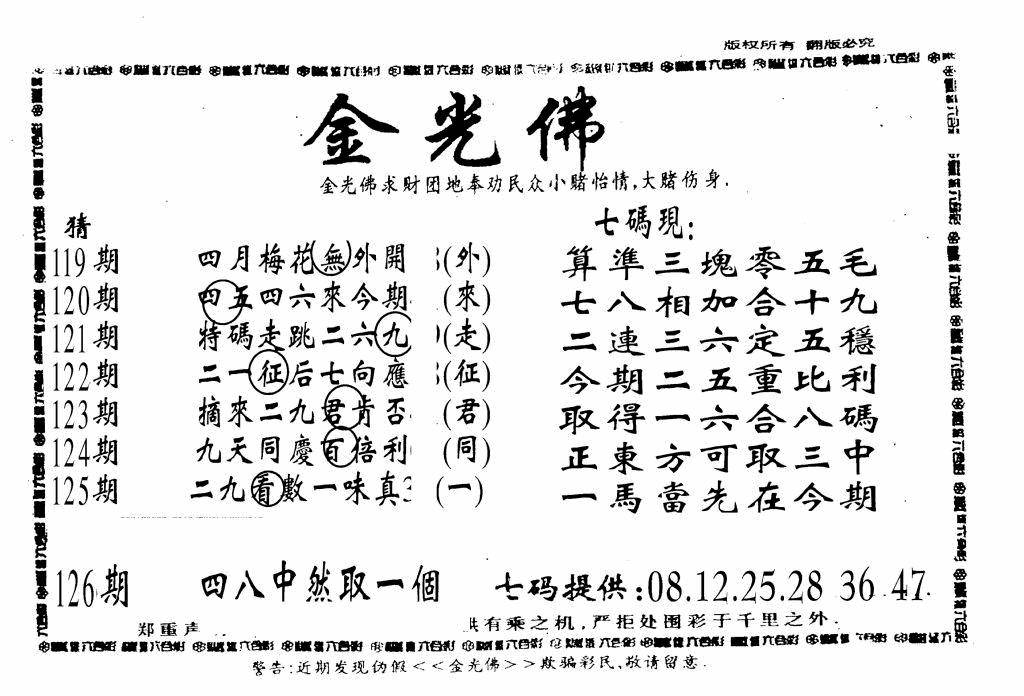 版权所有 翻版必究
金光佛
金光佛求财团地奉劝民众小赌怡情,大赌伤身.
猜
七碼現:
119期 四月梅花無外開 (外) 算準三塊零五毛
120期 四五四六來今期 (來) 七八相加合十九
121期 特碼走跳二六九 (走) 二連三六定五穩
122期 二一征后七向應 (征) 今期二五重比利
123期 摘來二九君肯否 (君) 取得一六合八碼
124期 九天同慶百倍利 (同) 正東方可取三中
125期 二九看數一味真 (一) 一馬當先在今期
126期 四八中然取一個 七码提供:08.12.25.28 36 47.
郑重声 有乘之机,严拒处围彩于千里之外.
警告:近期发现伪假<<金光佛>>欺骗彩民,敬请留意.